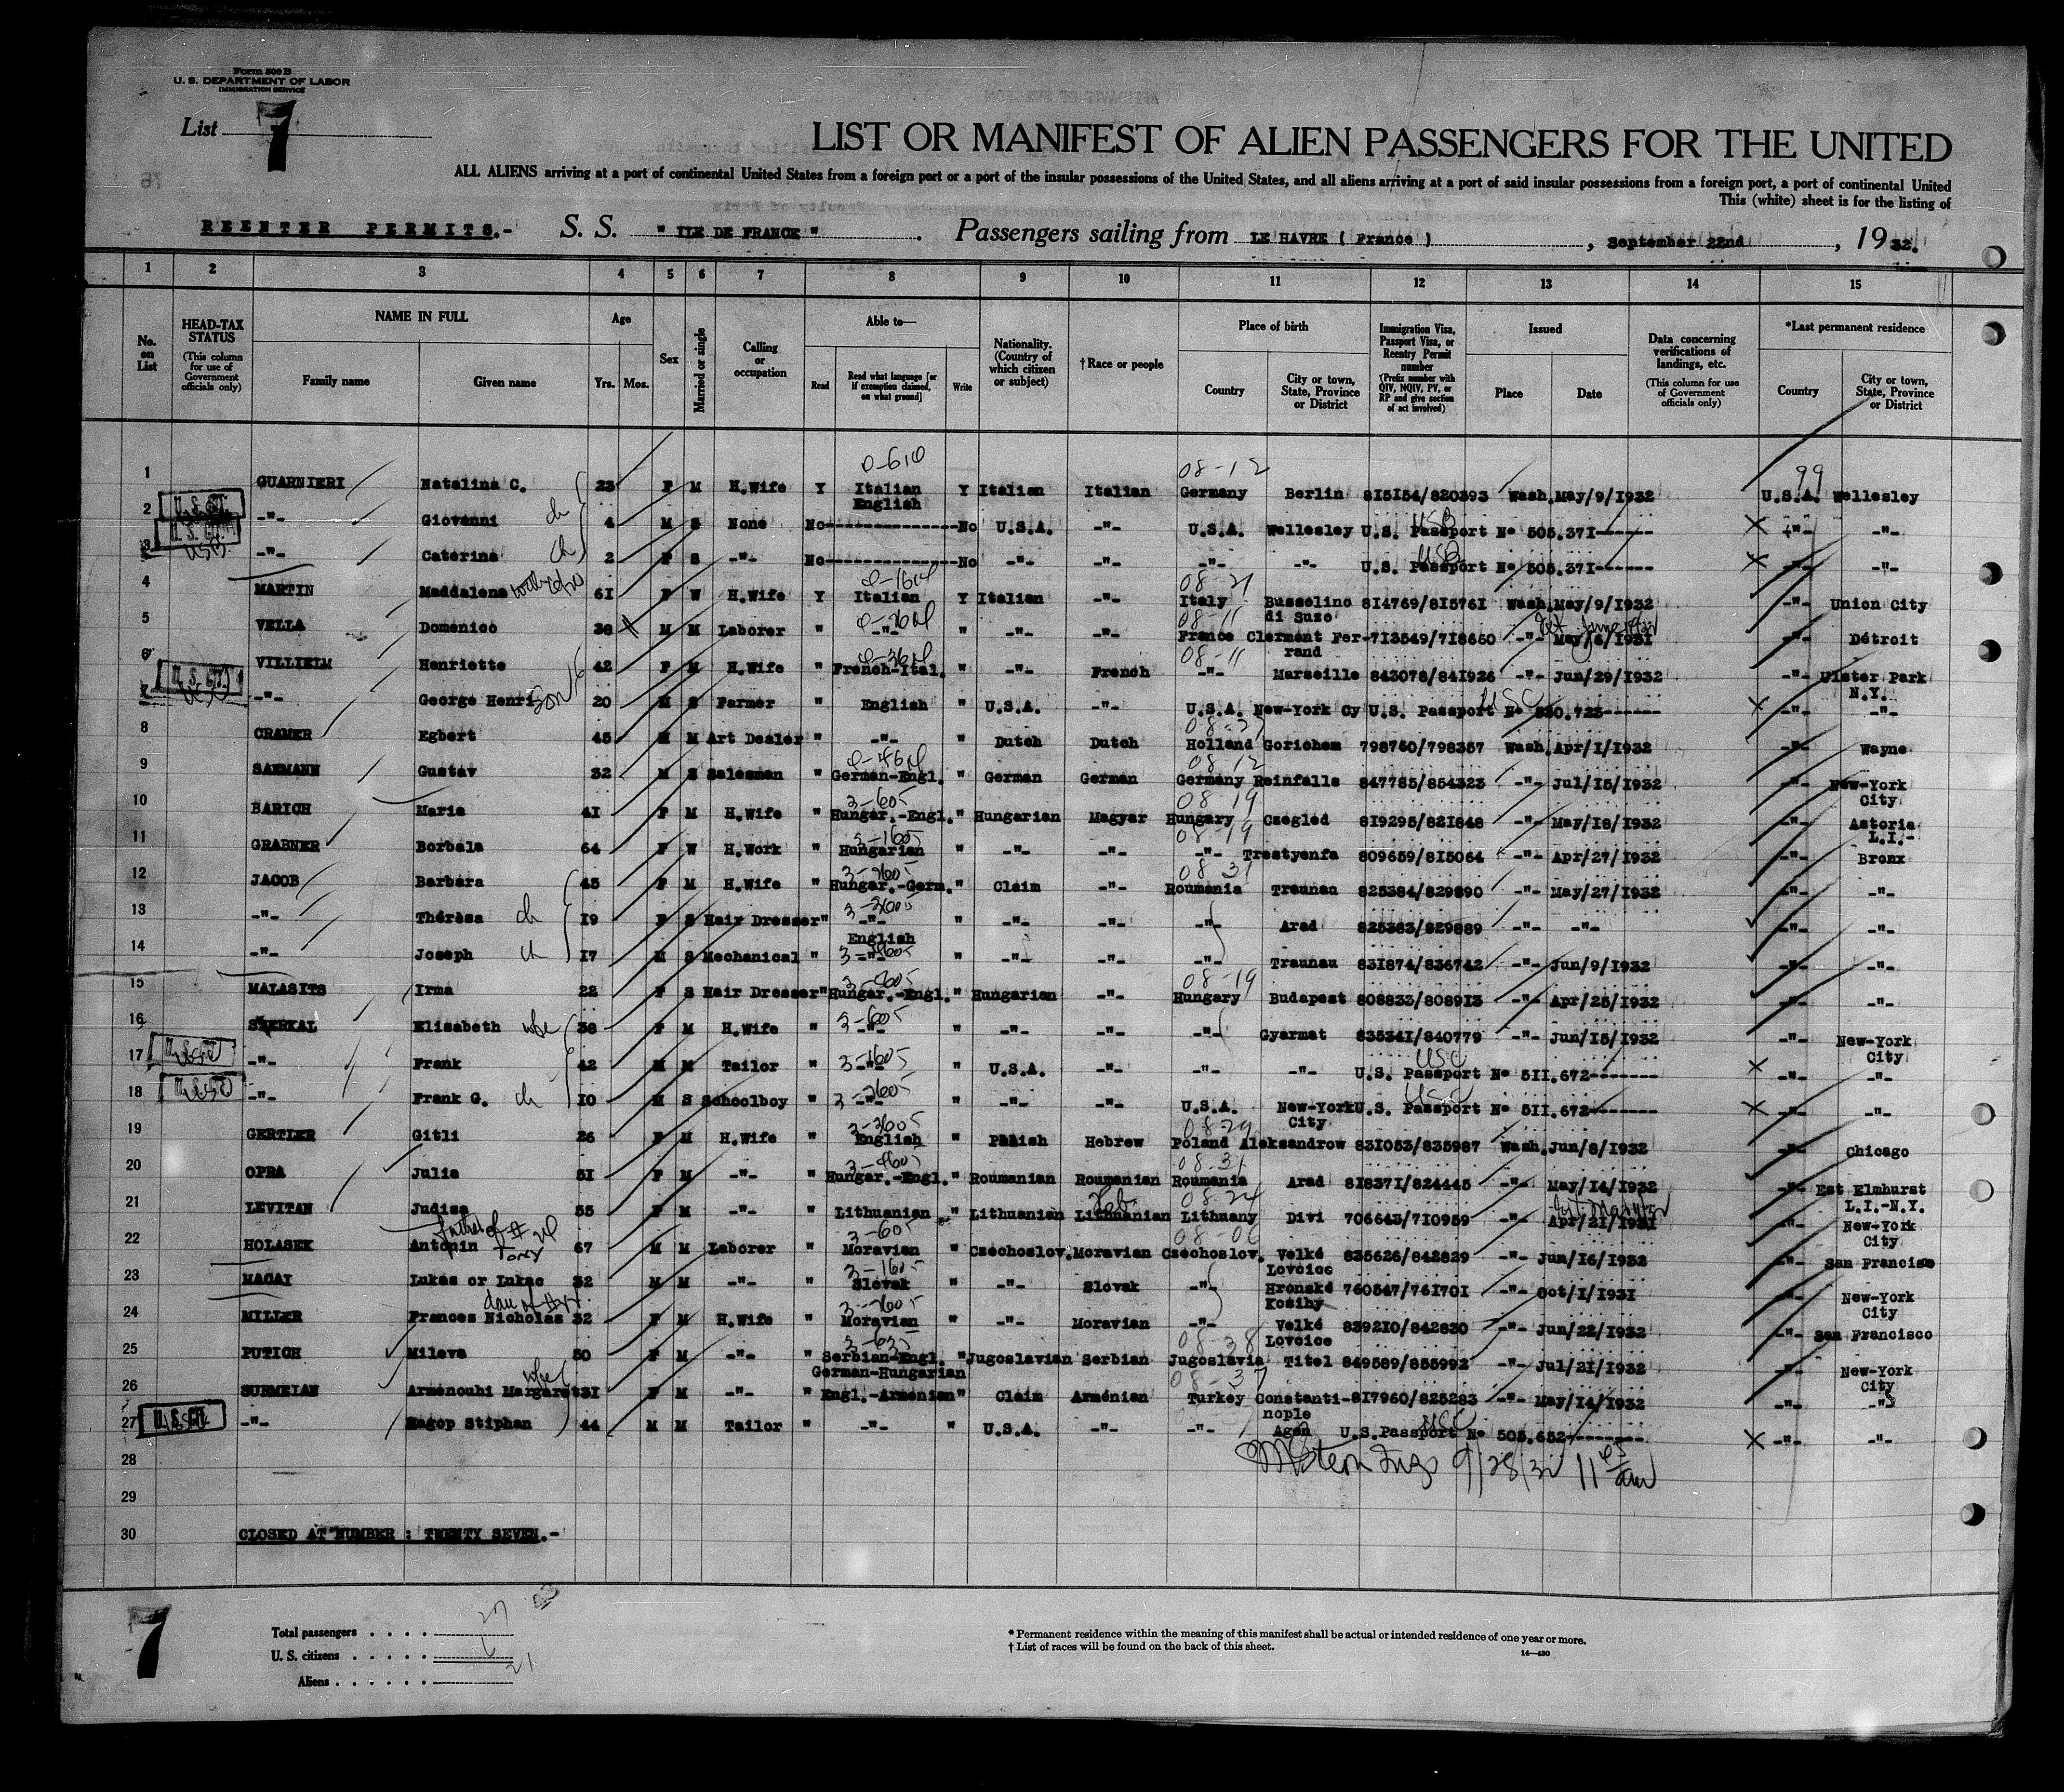 Form 500 B
U. S. DEPARTMENT OF LABOR
IMMIGRATION SERVICE
List 7
LIST OR MANIFEST OF ALIEN PASSENGERS FOR THE UNITED
ALL ALIENS arriving at a port of continental United States from a foreign port or a port of the insular possessions of the United States, and all aliens arriving at a port of said insular possessions from a foreign port, a port of continental United
This (white) sheet is for the listing of
REENTER PERMITS.- S. S. " ILE DE FRANCE " . Passengers sailing from LE HAVRE ( France ) , September 22nd , 19 32.
1 2 3 4 5 6 7 8 9 10 11 12 13 14 15
No. on List
HEAD-TAX STATUS
(This column for use of Government officials only)
NAME IN FULL
Family name Given name
Age
Yrs. Mos.
Sex
Married or single
Calling or occupation
Able to—
Read
Read what language [or if exemption claimed, on what ground]
Write
Nationality. (Country of which citizen or subject)
†Race or people
Place of birth
Country
City or town, State, Province or District
Immigration Visa, Passport Visa, or Reentry Permit number
(Prefix number with QIV, NQIV, PV, or RP and give section of act involved)
Issued
Place Date
Data concerning verifications of landings, etc.
(This column for use of Government officials only)
*Last permanent residence
Country
City or town, State, Province or District
0-610 08-12 99
1 GUARNIERI Natalina C. 23 F M H.Wife Y Italian English Y Italian Italian Germany Berlin 815154/820393 Wash. May/9/1932 U.S.A. Wellesley
2 -"- Giovanni ch 4 M S None No No U.S.A. -"- U.S.A. Wellesley U.S. Passport No 505.371------ -"- -"-
3 USB -"- Caterina ch 2 F S -"- No No -"- -"- -"- -"- U.S. Passport No 505.371------ -"- -"-
4 MARTIN Maddalena 61 F W H.Wife Y Italian Y Italian -"- Italy Bussolino di Suzo 814769/815761 Wash. May/9/1932 -"- Union City
5 VELLA Domenico 38 M M Laborer " -"- " -"- -"- France Clermont Ferrand 713549/718660 -"- May/6/1931 -"- Détroit
6 VILLIELM Henriette 42 F M H.Wife " French-Ital. " -"- French -"- Marseille 843078/841926 -"- Jun/29/1932 -"- Ulster Park N.Y.
7 U.S.CIT. -"- George Henri son 20 M S Farmer " English " U.S.A. -"- U.S.A. New-York Cy U.S. Passport No 530.723------ -"- -"-
8 CRAMER Egbert 45 M M Art Dealer " -"- " Dutch Dutch Holland Gorichem 798760/798357 Wash. Apr/1/1932 -"- Wayne
9 SAEMANN Gustav 32 M S Salesman " German-Engl. " German German Germany Reinfalls 847785/854323 -"- Jul/15/1932 -"- New-York City
10 BARICH Maria 41 F M H.Wife " Hungar.-Engl. " Hungarian Magyar Hungary Czegled 819295/821848 -"- May/18/1932 -"- Astoria L.I.-
11 GRABNER Borbala 64 F W H.Work " Hungarian " -"- -"- -"- Trestyenfa 809659/815064 -"- Apr/27/1932 -"- Bronx
12 JACOB Barbara 45 F M H.Wife " Hungar.-Germ. " Claim -"- Roumania Traunau 825384/829890 -"- May/27/1932 -"- -"-
13 -"- Thérèsa ch 19 F S Hair Dresser " -"- " -"- -"- -"- Arad 825383/829889 -"- -"- -"- -"-
14 -"- Joseph ch 17 M S Mechanical " English -"- " -"- -"- -"- Traunau 831874/836742 -"- Jun/9/1932 -"- -"-
15 MALASITS Irma 22 F S Hair Dresser " Hungar.-Engl. " Hungarian -"- Hungary Budapest 808833/808913 -"- Apr/25/1932 -"- -"-
16 Elisabeth wife 38 F M H.Wife " -"- " -"- -"- -"- Gyarmat 835341/840779 -"- Jun/15/1932 -"- New-York City
17 -"- Frank 42 M M Tailor " -"- " U.S.A. -"- -"- U.S. Passport No 511.672------- -"- -"-
18 -"- Frank G. ch 10 M S Schoolboy " -"- " -"- -"- U.S.A. New-York City U.S. Passport No 511.672------- -"- -"-
19 GERTLER Gitli 26 F M H.Wife " English " Polish Hebrew Poland Aleksandrow 831053/835987 Wash. Jun/8/1932 -"- Chicago
20 OPRA Julia 51 F M -"- " Hungar.-Engl. " Roumanian Roumanian Roumania Arad 818371/824445 -"- May/14/1932 -"- Est Elmhurst L.I.-N.Y.
21 LEVITAN Judisa 55 F M -"- " Lithuanian " Lithuanian Lithuanian Heb Lithuany Divi 706643/710959 -"- Apr/21/1931 -"- New-York City
22 HOLASEK Antonin Tony father of # 24 67 M M Laborer " Moravian " Czéchoslov. Moravian Czéchoslov. Velké Lovcice 835626/842829 -"- Jun/16/1932 -"- San Francisco
23 MACAI Lukas or Lukac 32 M M -"- " Slovak " -"- Slovak -"- Hronské Kosihy 760547/761701 -"- Oct/1/1931 -"- New-York City
24 MILLER Frances Nicholas 32 F M H.Wife " Moravian " -"- Moravian -"- Velké Lovcice 839210/842830 -"- Jun/22/1932 -"- San Francisco
25 PUTICH Mileva 50 F M -"- " Serbian-Engl. German-Hungarian " Jugoslavian Serbian Jugoslavia Titel 849589/855992 -"- Jul/21/1932 -"- New-York City
26 SURMEIAN Arménouhi Margaret wife 31 F M -"- " Engl.-Arménian " Claim Arménian Turkey Constantinople 817960/825283 -"- May/14/1932 -"- -"-
27 U.S.CIT. -"- Hagop Stiphan 44 M M Tailor " -"- " U.S.A. -"- -"- Agen U.S. Passport No 505.652-------- -"- -"-
28 9/28/32
29
30 CLOSED AT NUMBER : TWENTY SEVEN.-
7
Total passengers . . . . 27
U. S. citizens . . . . . 6
Aliens . . . . . . 21
* Permanent residence within the meaning of this manifest shall be actual or intended residence of one year or more.
† List of races will be found on the back of this sheet.
14—430